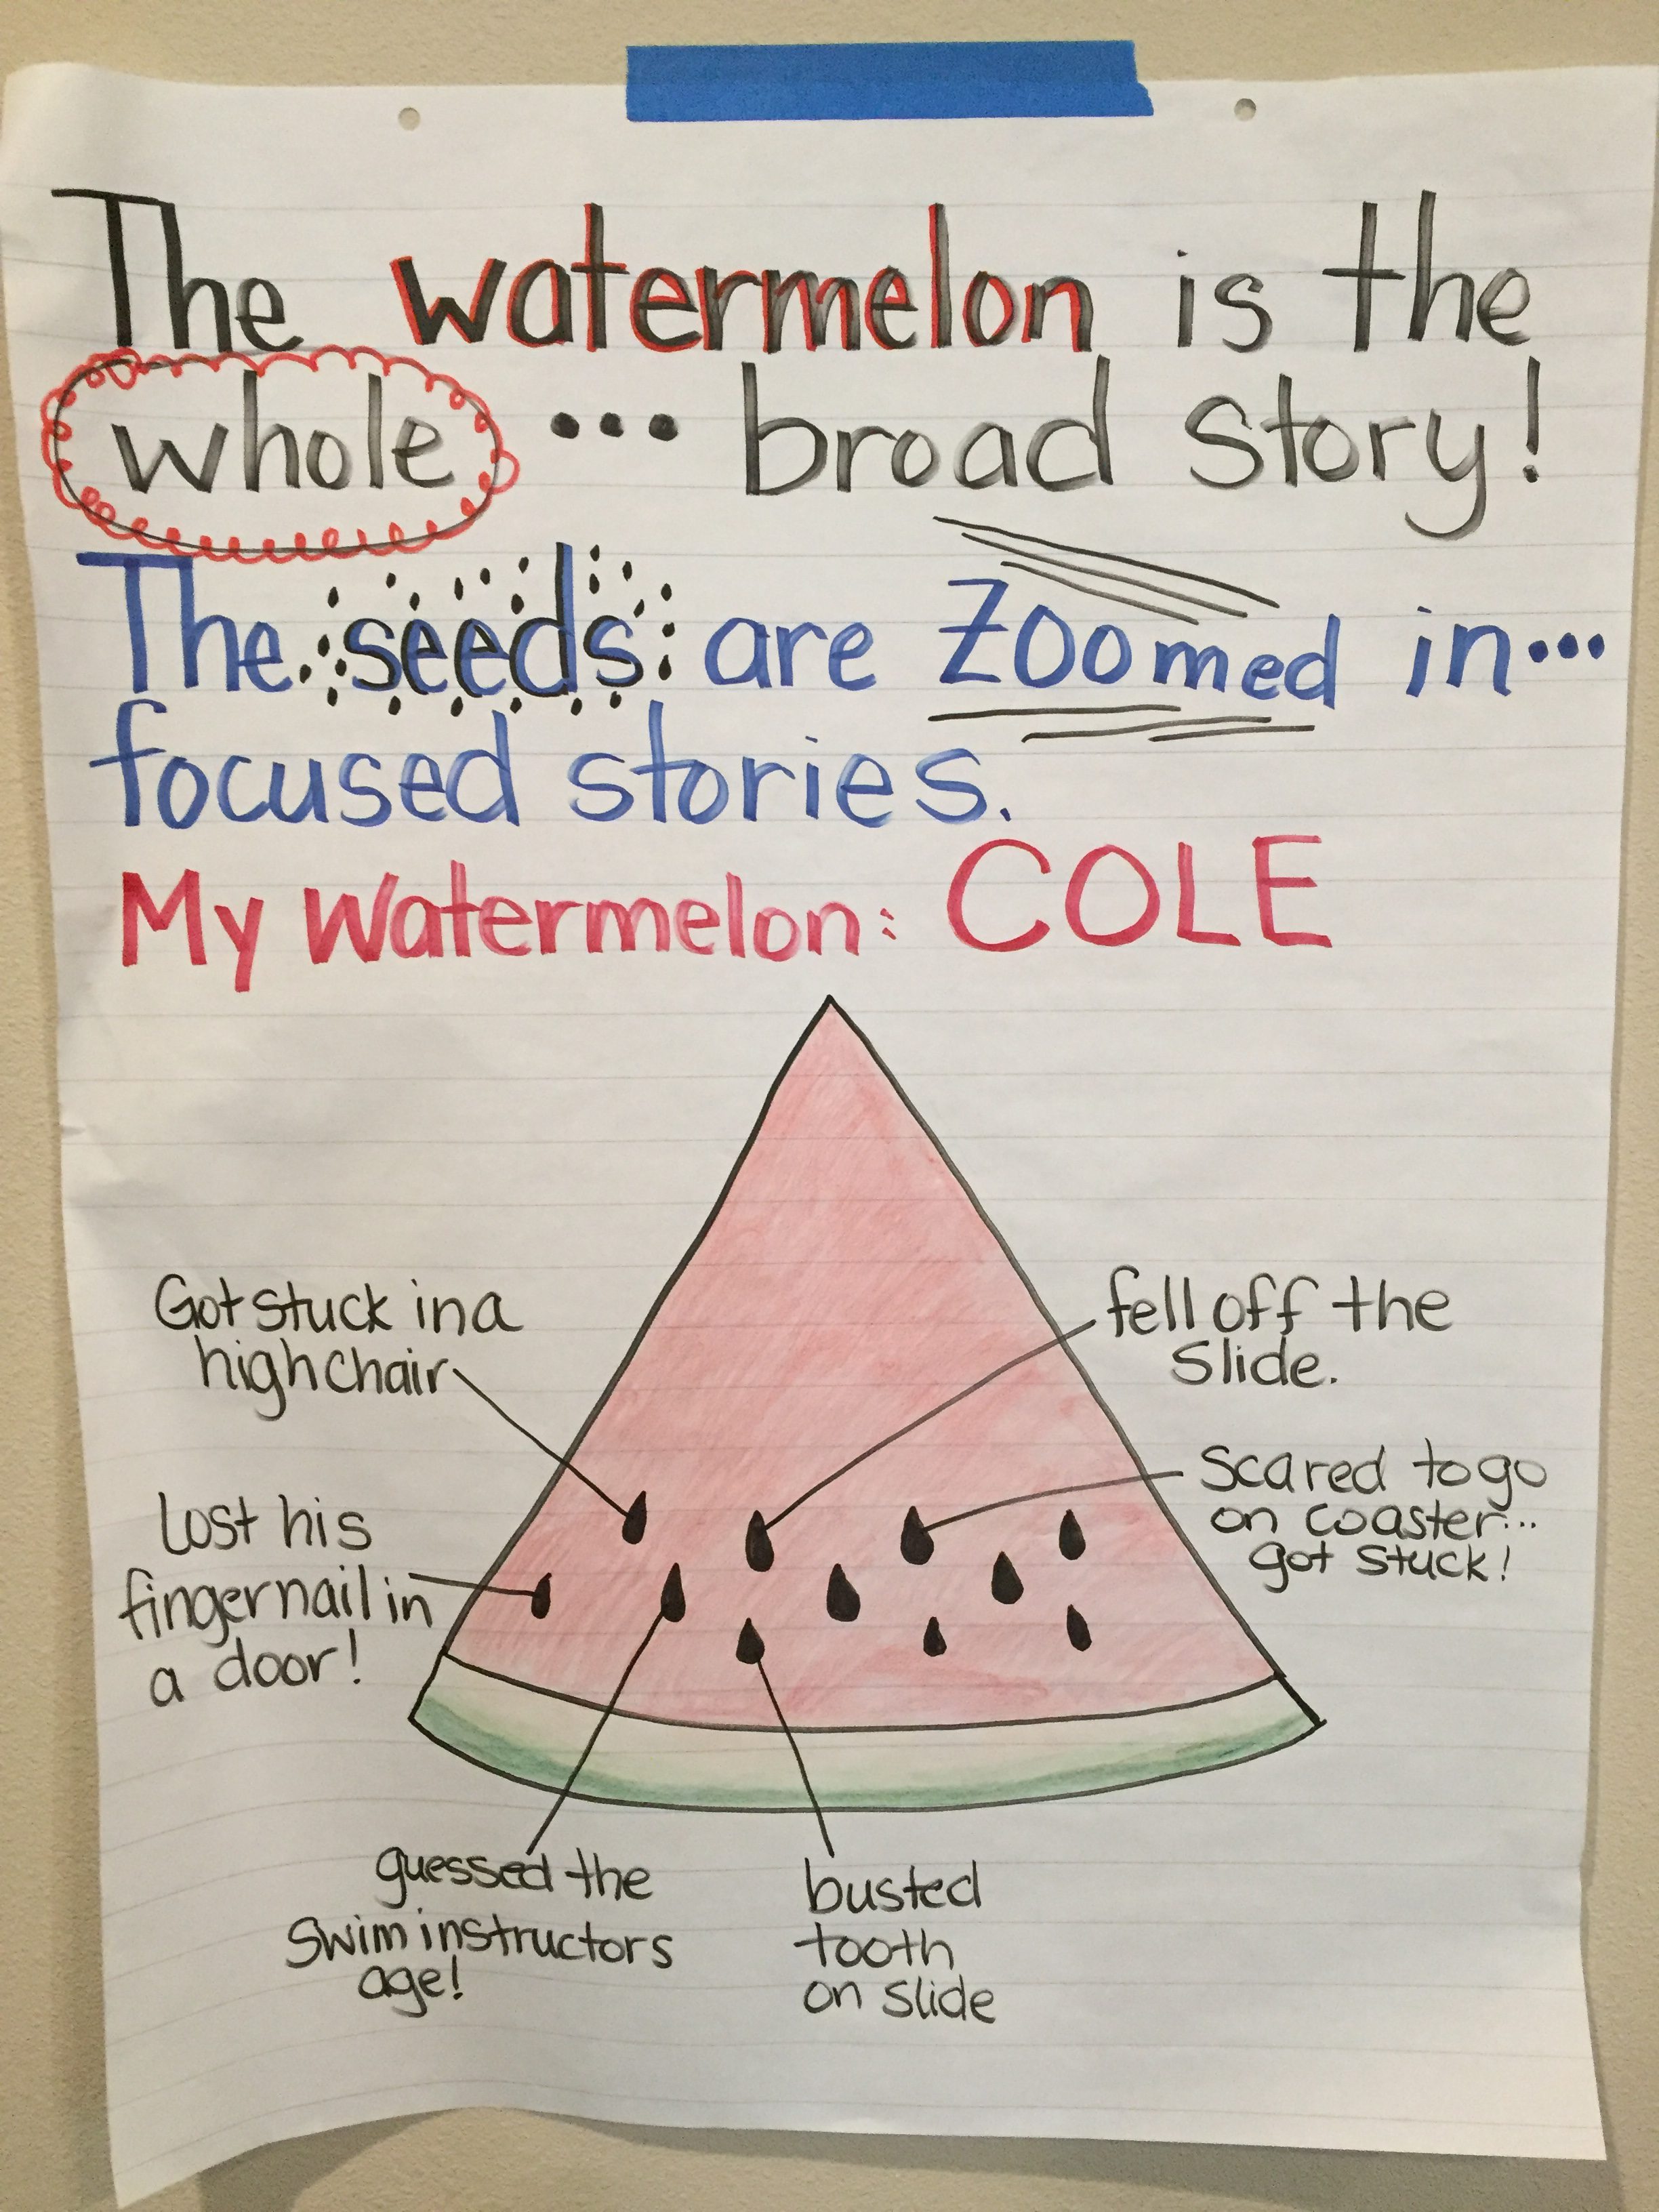 The watermelon is the
whole ... broad story!
The seeds are zoomed in...
focused stories.
My Watermelon: COLE
Got stuck in a
highchair
fell off the
Slide.
Scared to go
on coaster...
got stuck!
Lost his
fingernail in
a door!
guessed the
Swim instructors
age!
busted
tooth
on slide